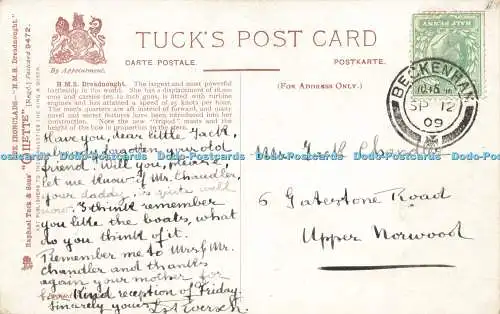 TUCK'S POST CARD
CARTE POSTALE. POSTKARTE.
By Appointment.
(FOR ADDRESS ONLY.)
H.M.S. Dreadnought. The largest and most powerful
battleship in the world. She has a displacement of
tons and carries ten 12 inch guns, is fitted with turbine
engines and has attained a speed of 25 knots per hour.
The men's quarters are aft instead of forward, and many
novel and secret features have been introduced into her
construction. Note the new "tripod" masts and the
height of the bow in proportion to the stern.
Have you, dear little Jack,
forgotten your old
friend. Will you, please,
let me know if Mr. Chandler,
your daddy, is quite well
now. I think remember
you like the boats, what
do you think of it.
Remember me to Mrs & Mr.
Chandler and thanks
again your mother for
kind reception of Friday.
Sincerely yours
Jack Chandler
6 Gatestone Road
Upper Norwood
BECKENHAM
SP 12
09
HALF PENNY
Raphael Tuck & Sons' "OILETTE" [Regd.] Postcard 9472.
IRONCLADS—"H.M.S. Dreadnought."
ART PUBLISHERS TO THEIR MAJESTIES THE KING & QUEEN.
www.Dodo-Media.com